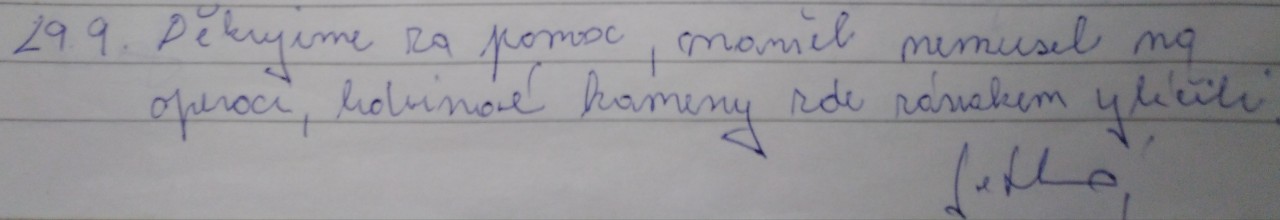 29.9. Děkujeme za pomoc, manžel nemusel na
operaci, ledvinové kameny zde zázrakem vyléčili.